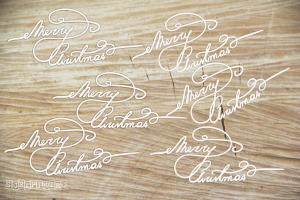 Merry
Christmas
Merry
Christmas
Merry
Christmas
Merry
Christmas
Merry
Christmas
Merry
Christmas